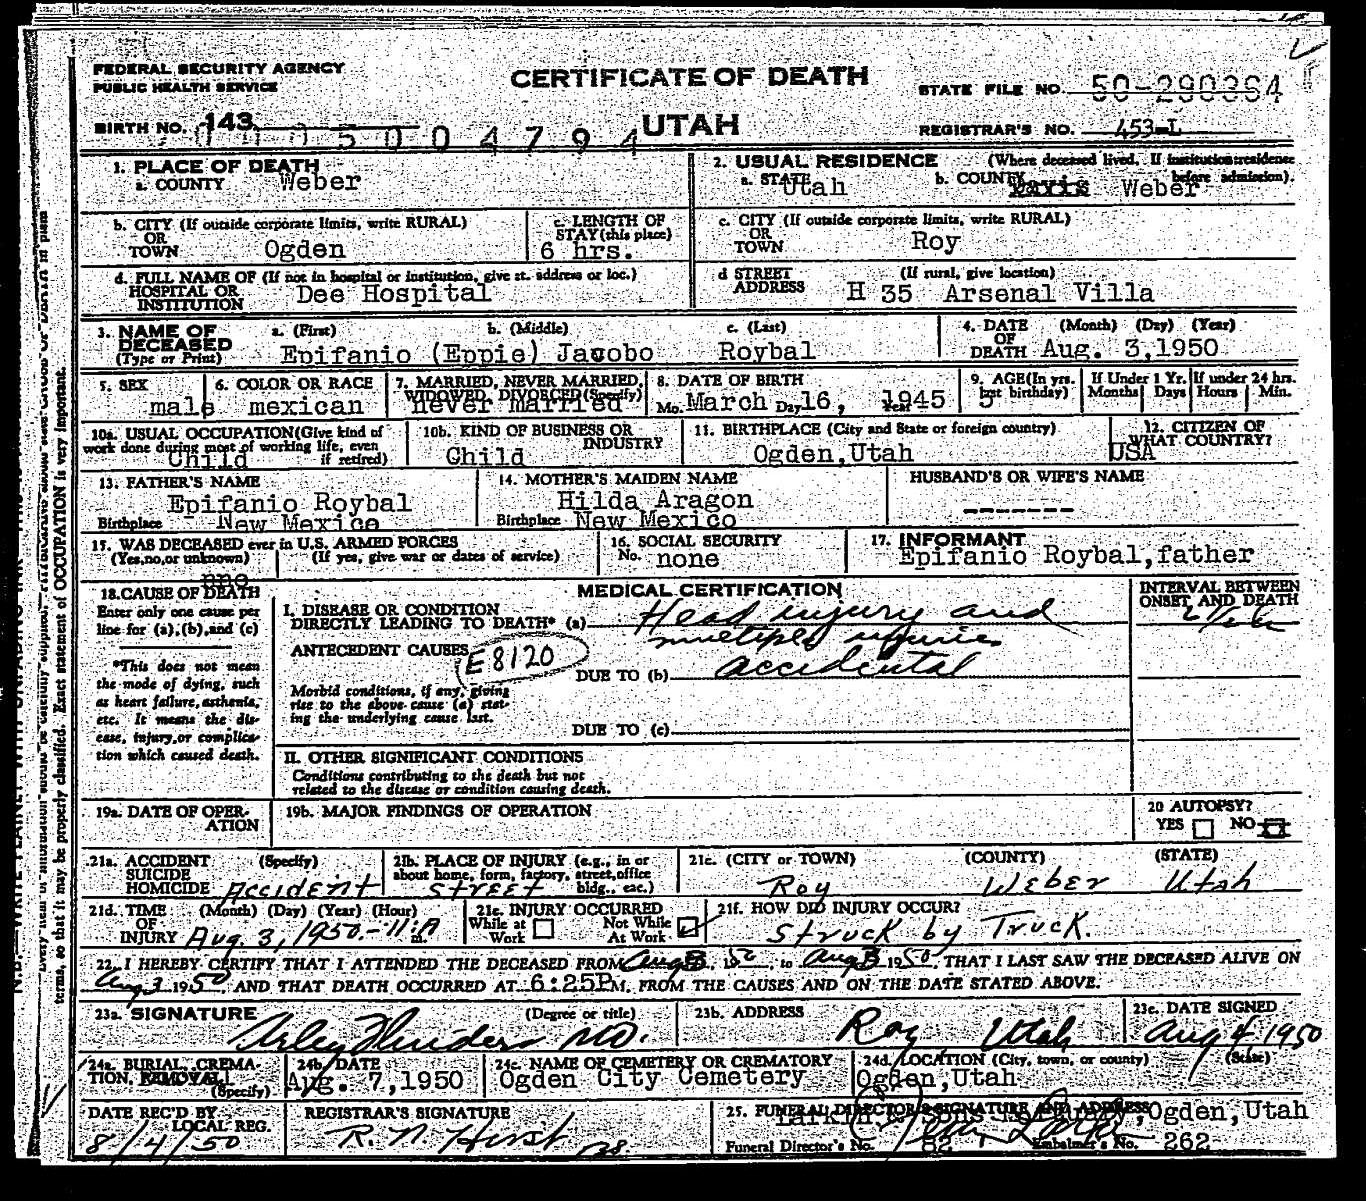 FEDERAL SECURITY AGENCY
PUBLIC HEALTH SERVICE
CERTIFICATE OF DEATH
STATE FILE NO. 50-290364
BIRTH NO. 143
UTAH
REGISTRAR'S NO. 453-L
1. PLACE OF DEATH
a. COUNTY Weber
2. USUAL RESIDENCE (Where deceased lived. If institution: residence before admission).
a. STATE Utah b. COUNTY Davis Weber
b. CITY (If outside corporate limits, write RURAL) OR TOWN Ogden
c. LENGTH OF STAY (this place) 6 hrs.
c. CITY (If outside corporate limits, write RURAL) OR TOWN Roy
d. FULL NAME OF (If not in hospital or institution, give st. address or loc.) HOSPITAL OR INSTITUTION Dee Hospital
d STREET ADDRESS (If rural, give location) H 35 Arsenal Villa
3. NAME OF DECEASED (Type or Print)
a. (First) b. (Middle) c. (Last)
Epifanio (Eppie) Jacobo Roybal
4. DATE OF DEATH (Month) (Day) (Year) Aug. 3,1950
5. SEX male
6. COLOR OR RACE mexican
7. MARRIED, NEVER MARRIED, WIDOWED, DIVORCED (Specify) never married
8. DATE OF BIRTH Mo. March Day 16, Year 1945
9. AGE (In yrs. last birthday) 5
If Under 1 Yr. Months Days
If under 24 hrs. Hours Min.
10a. USUAL OCCUPATION (Give kind of work done during most of working life, even if retired) Child
10b. KIND OF BUSINESS OR INDUSTRY Child
11. BIRTHPLACE (City and State or foreign country) Ogden,Utah
12. CITIZEN OF WHAT COUNTRY? USA
13. FATHER'S NAME Epifanio Roybal
Birthplace New Mexico
14. MOTHER'S MAIDEN NAME Hilda Aragon
Birthplace New Mexico
HUSBAND'S OR WIFE'S NAME -------
15. WAS DECEASED ever in U.S. ARMED FORCES
(Yes,no,or unknown) (If yes, give war or dates of service)
16. SOCIAL SECURITY No. none
17. INFORMANT Epifanio Roybal,father
18. CAUSE OF DEATH
Enter only one cause per line for (a), (b), and (c)
*This does not mean the mode of dying, such as heart failure, asthenia, etc. It means the disease, injury, or complication which caused death.
MEDICAL CERTIFICATION
INTERVAL BETWEEN ONSET AND DEATH
I. DISEASE OR CONDITION DIRECTLY LEADING TO DEATH* (a) Head injury and multiple injuries
ANTECEDENT CAUSES E8120
DUE TO (b) accidental
Morbid conditions, if any, giving rise to the above cause (a) stating the underlying cause last.
DUE TO (c)
II. OTHER SIGNIFICANT CONDITIONS
Conditions contributing to the death but not related to the disease or condition causing death.
19a. DATE OF OPERATION
19b. MAJOR FINDINGS OF OPERATION
20 AUTOPSY?
YES NO
21a. ACCIDENT SUICIDE HOMICIDE (Specify) Accident
21b. PLACE OF INJURY (e.g., in or about home, form, factory, street, office bldg., eac.) Street
21c. (CITY or TOWN) (COUNTY) (STATE)
Roy Weber Utah
21d. TIME OF INJURY (Month) (Day) (Year) (Hour) Aug. 3, 1950.-11:A m.
21e. INJURY OCCURRED
While at Work Not While At Work
21f. HOW DID INJURY OCCUR?
Struck by Truck.
22. I HEREBY CERTIFY THAT I ATTENDED THE DECEASED FROM Aug 3, 1950, to Aug 3 1950, THAT I LAST SAW THE DECEASED ALIVE ON
Aug 3 1950, AND THAT DEATH OCCURRED AT 6:25P M. FROM THE CAUSES AND ON THE DATE STATED ABOVE.
23a. SIGNATURE (Degree or title)
MD.
23b. ADDRESS Roy Utah
23c. DATE SIGNED Aug 4, 1950
24a. BURIAL, CREMATION, REMOVAL (Specify)
24b. DATE Aug. 7,1950
24c. NAME OF CEMETERY OR CREMATORY
Ogden City Cemetery
24d. LOCATION (City, town, or county) (State)
Ogden,Utah
DATE REC'D BY LOCAL REG.
8/4/50
REGISTRAR'S SIGNATURE
R. N. Hirst
25. FUNERAL DIRECTOR'S SIGNATURE AND ADDRESS
Larkin & Sons ,Ogden,Utah
Funeral Director's No. 82 Embalmer's No. 262